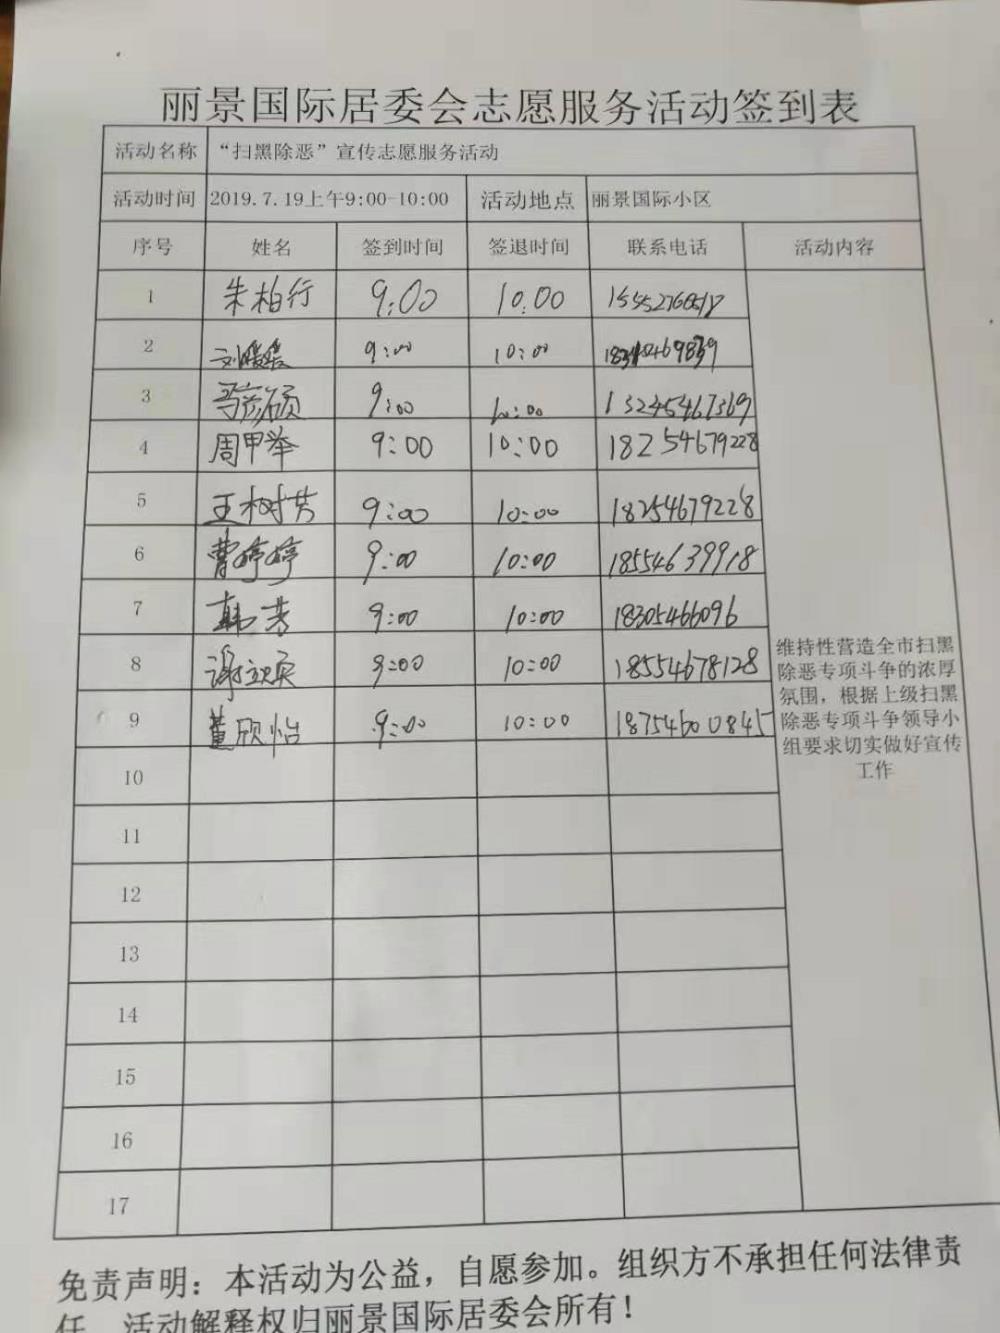 丽景国际居委会志愿服务活动签到表
活动名称 “扫黑除恶”宣传志愿服务活动
活动时间 2019.7.19上午9:00-10:00 活动地点 丽景国际小区
序号 姓名 签到时间 签退时间 联系电话 活动内容
1 朱柏行 9:00 10:00
2 刘媛媛 9:00 10:00
3 9:00 10:00 13245467369
4 周甲举 9:00 10:00 18254679228
5 王树芳 9:00 10:00 18254679228
6 曹婷婷 9:00 10:00 18554639918
7 韩芳 9:00 10:00 18305466096
8 9:00 10:00 18554678128
9 董欣怡 9:00 10:00 18754600845
维持性营造全市扫黑
除恶专项斗争的浓厚
氛围，根据上级扫黑
除恶专项斗争领导小
组要求切实做好宣传
工作
10
11
12
13
14
15
16
17
免责声明：本活动为公益，自愿参加。组织方不承担任何法律责
任，活动解释权归丽景国际居委会所有！